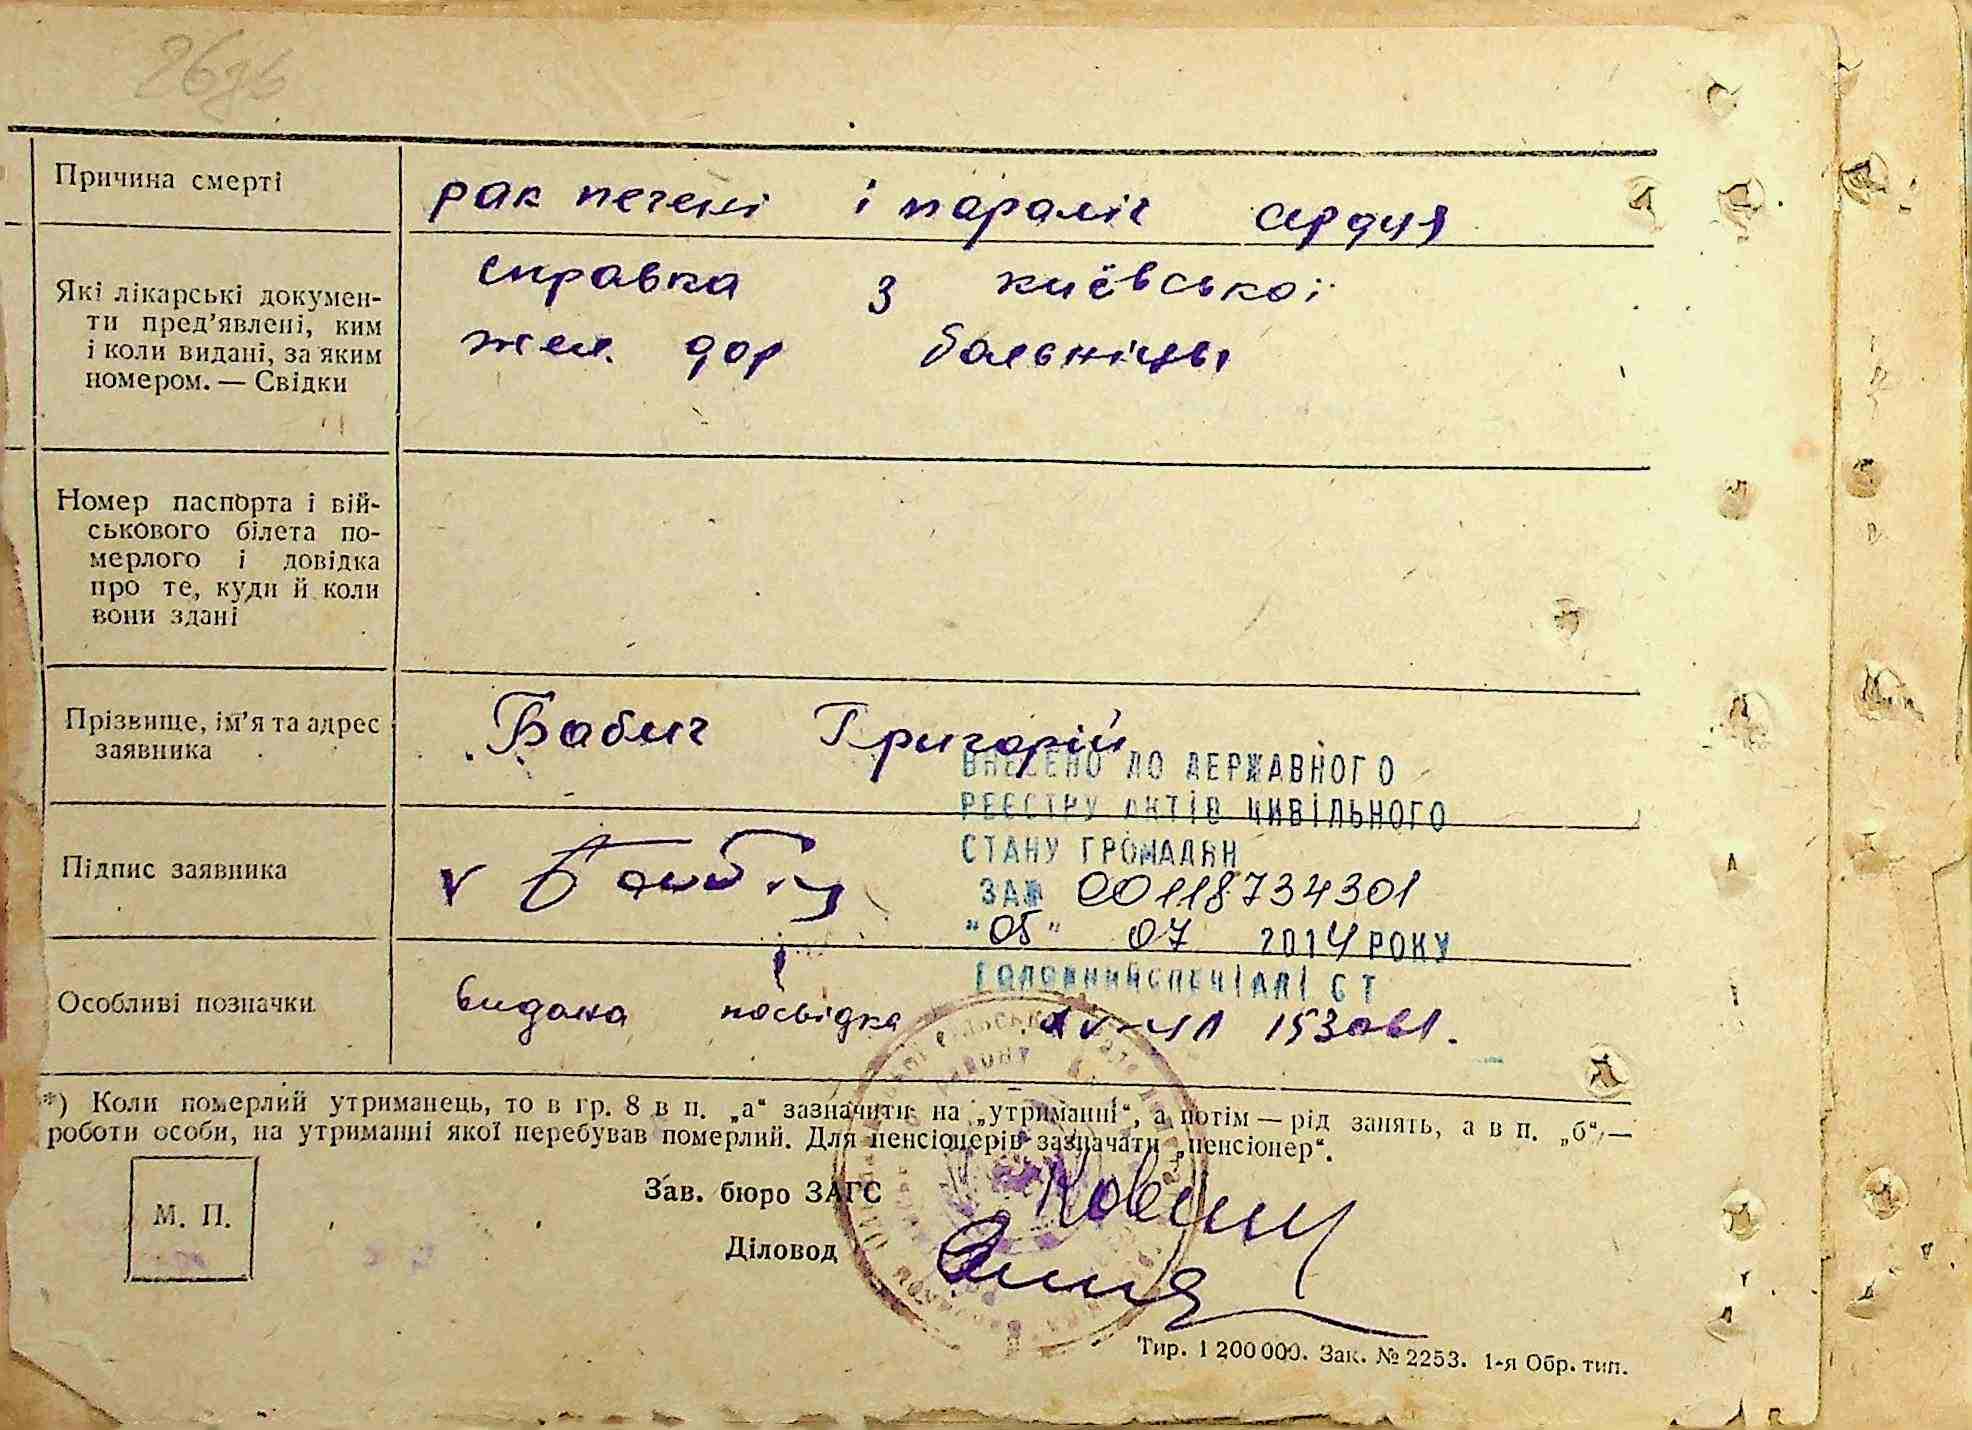 26
Причина смерті
рак печені і параліч сердця
Які лікарські докумен-
ти пред'явлені, ким
і коли видані, за яким
номером. — Свідки
справка з київської
жел. дор больніцы
Номер паспорта і вій-
ськового білета по-
мерлого і довідка
про те, куди й коли
вони здані
Прізвище, ім'я та адрес
заявника
Бабич Григорій
ВНЕСЕНО ДО ДЕРЖАВНОГО
РЕЄСТРУ АКТІВ ЦИВІЛЬНОГО
СТАНУ ГРОМАДЯН
ЗА№ 00118734301
"05" 07 2014 РОКУ
ГОЛОВНИЙ СПЕЦІАЛІСТ
Підпис заявника
v
Особливі позначки
видана посвідка
*) Коли померлий утриманець, то в гр. 8 в п. „а“ зазначити на „утриманні“, а потім — рід занять, а в п. „б“ —
роботи особи, на утриманні якої перебував померлий. Для пенсіонерів зазначати „пенсіонер“.
М. П.
Зав. бюро ЗАГС
Діловод
Тир. 1 200 000. Зак. № 2253. 1-я Обр. тип.